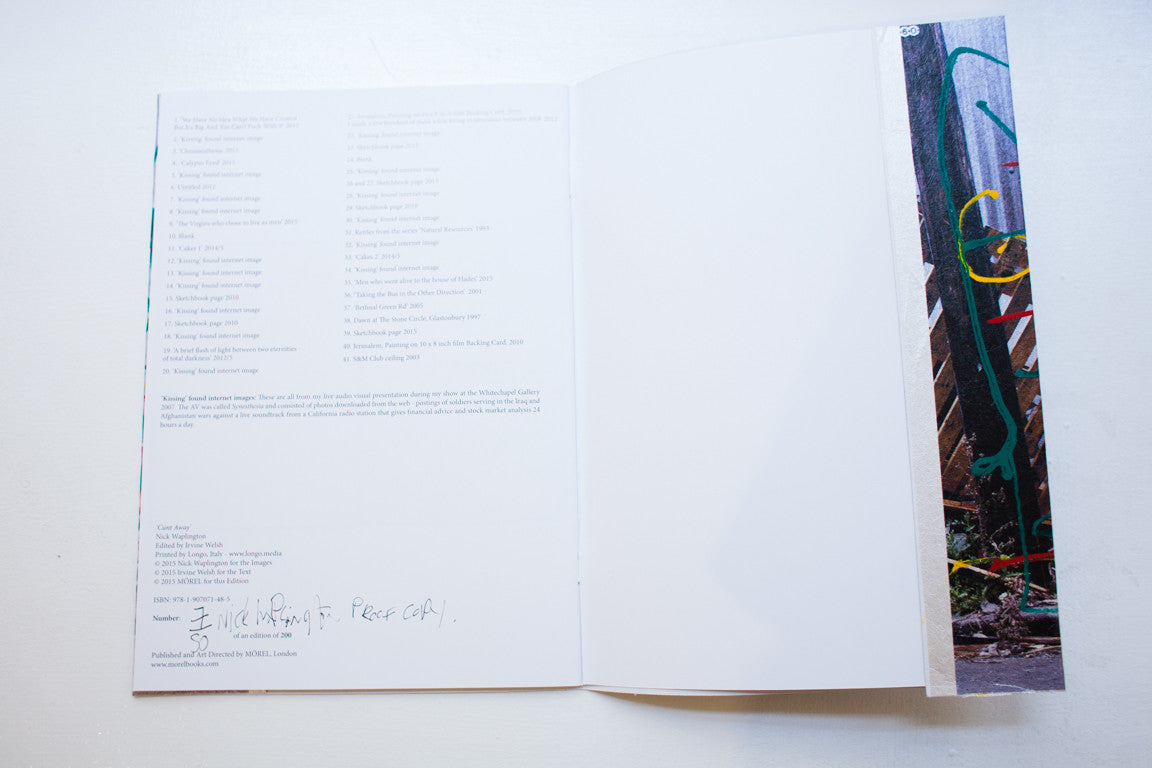 1. 'We Have No Idea What We Have Created
But It's Big And You Can't Fuck With It' 2011
2. 'Kissing' found internet image
3. 'Chromosthesia' 2015
4. 'Calypso Feed' 2015
5. 'Kissing' found internet image
6. Untitled 2012
7. 'Kissing' found internet image
8. 'Kissing' found internet image
9. 'The Virgins who chose to live as men' 2015
10. Blank
11. 'Cakes 1' 2014/5
12. 'Kissing' found internet image
13. 'Kissing' found internet image
14. 'Kissing' found internet image
15. Sketchbook page 2010
16. 'Kissing' found internet image
17. Sketchbook page 2010
18. 'Kissing' found internet image
19. 'A brief flash of light between two eternities
of total darkness' 2012/5
20. 'Kissing' found internet image
21. Jerusalem, Painting on 10 x 8 inch film Backing Card. 2010
I made a few hundred of these when living in Jerusalem between 2008-2012
22. 'Kissing' found internet image
23. Sketchbook page 2015
24. Blank
25. 'Kissing' found internet image
26 and 27. Sketchbook page 2015
28. 'Kissing' found internet image
29. Sketchbook page 2010
30. 'Kissing' found internet image
31. Kettles from the series 'Natural Resources' 1993
32. 'Kissing' found internet image
33. 'Cakes 2' 2014/5
34. 'Kissing' found internet image
35. 'Men who went alive to the house of Hades' 2015
36. 'Taking the Bus in the Other Direction' 2001
37. 'Bethnal Green Rd' 2005
38. Dawn at The Stone Circle, Glastonbury 1997
39. Sketchbook page 2015
40. Jerusalem, Painting on 10 x 8 inch film Backing Card. 2010
41. S&M Club ceiling 2003
'Kissing' found internet images: These are all from my live audio visual presentation during my show at the Whitechapel Gallery
2007. The AV was called Synesthesia and consisted of photos downloaded from the web - postings of soldiers serving in the Iraq and
Afghanistan wars against a live soundtrack from a California radio station that gives financial advice and stock market analysis 24
hours a day.
'Cunt Away'
Nick Waplington
Edited by Irvine Welsh
Printed by Longo, Italy - www.longo.media
© 2015 Nick Waplington for the Images
© 2015 Irvine Welsh for the Text
© 2015 MÖREL for this Edition
ISBN: 978-1-907071-48-5
Number: Nick Waplington Proof copy.
50 of an edition of 200
Published and Art Directed by MÖREL, London
www.morelbooks.com